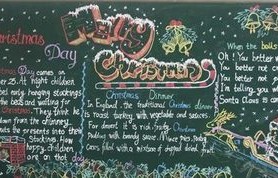 Merry
Christmas
Christmas
Day
Day comes on
at night children
hang stockings
the beds and waiting for
They think he
down from the chimney.
puts the presents into their
stockings. How
happy children
are on that day
Christmas Dinner
In England, the traditional Christmas dinner
is roast turkey with vegetables and sauces.
For desert it is rich, fruity Christmas
Pudding with brandy sauce. Mince pies, Pastry
Cases filled with a mixture of chopped dried fruit.
When the bells
Oh! You better w
You better not c
You better not
I'm telling you
Santa Claus is co